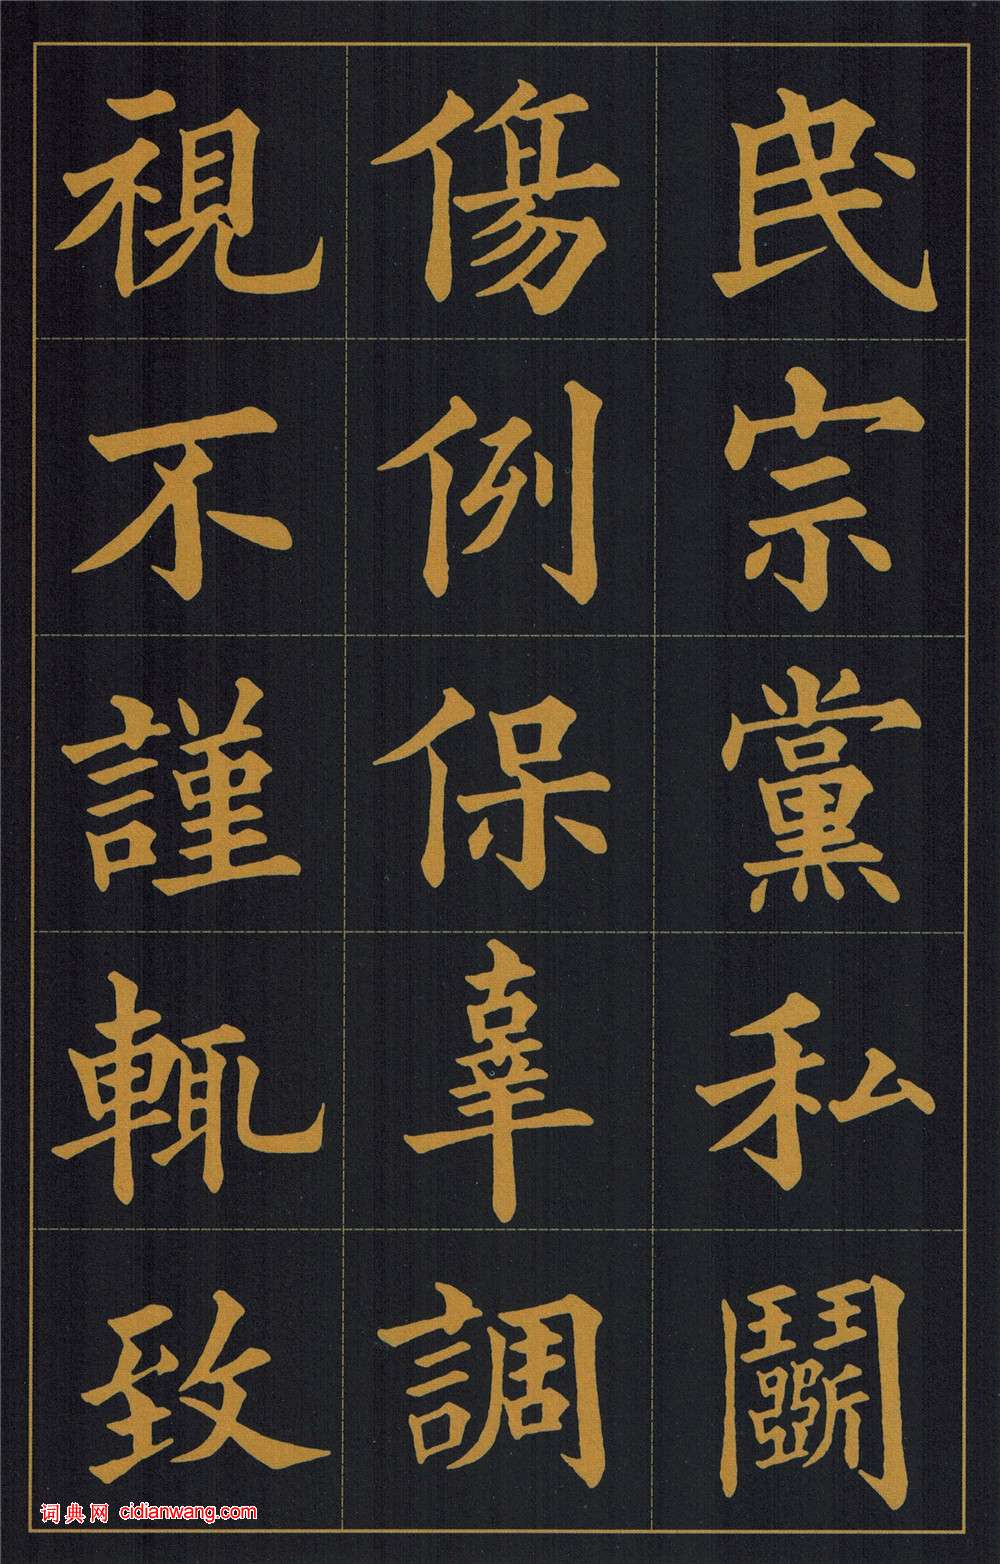 民宗黨私鬬
傷例保辜調
視不謹輒致
词典网 cidianwang.com